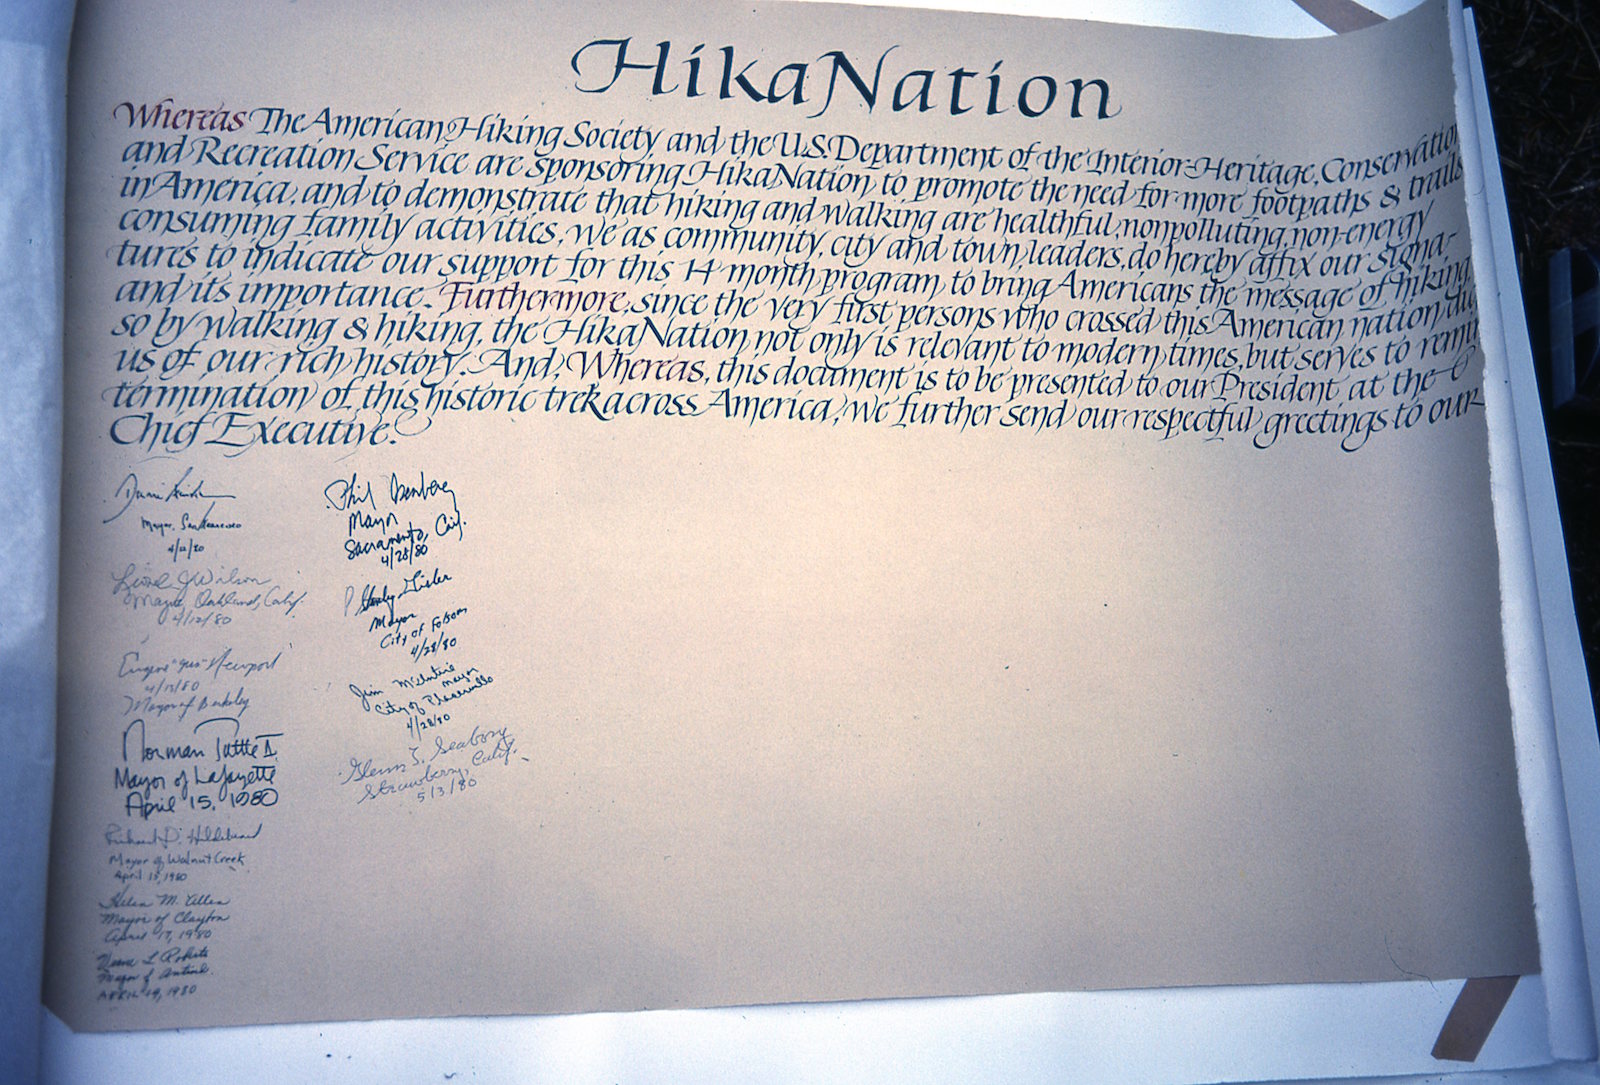 HikaNation
Whereas The American Hiking Society and the U.S. Department of the Interior-Heritage, Conservation
and Recreation Service are sponsoring HikaNation to promote the need for more footpaths & trails
in America, and to demonstrate that hiking and walking are healthful, nonpolluting, non-energy
consuming family activities, we as community, city and town leaders, do hereby affix our signa-
tures to indicate our support for this 14 month program to bring Americans the message of hiking
and its importance. Furthermore, since the very first persons who crossed this American nation did
so by walking & hiking, the HikaNation not only is relevant to modern times, but serves to
us of our rich history. And, Whereas, this document is to be presented to our President, at the
termination of this historic trek across America, we further send our respectful greetings to our
Chief Executive.
Mayor, San Francisco
4/12/80
Lionel J Wilson
Mayor, Oakland, Calif.
4/12/80
Eugene "Gus" Newport
4/13/80
Mayor of Berkeley
Norman Tuttle II
Mayor of Lafayette
April 15, 1980
Richard D. Hildebrand
Mayor of Walnut Creek
April 15, 1980
Helen M. Allen
Mayor of Clayton
April 17, 1980
Verne L Roberts
Mayor of Antioch
APRIL 19, 1980
Phil Isenberg
Mayor
Sacramento, Calif.
4/28/80
Mayor
City of Folsom
4/28/80
Jim McIntire
Mayor
City of Placerville
4/28/80
Glenn T. Seaborg
Strawberry, Calif.
5/3/80